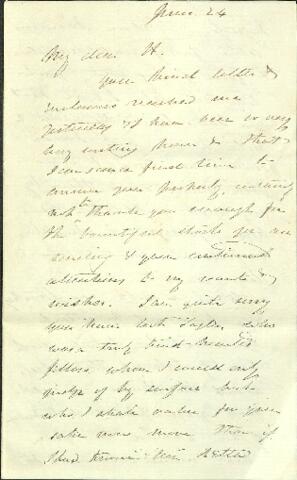 June 24
My dear H.
Your kind letter &
enclosures reached me
yesterday & I have been so very
busy writing home & that
I can scarce find time to
answer you properly, certainly
not to thank you enough for
the bountiful stock you are
sending & your continued
attentions to my wants &
wishes. I am quite sorry
you have lost Taylor who
was a truly kind-hearted
fellow whom I could only
judge of by surface but
who I shall value for your
sake even more than if
I had known him better